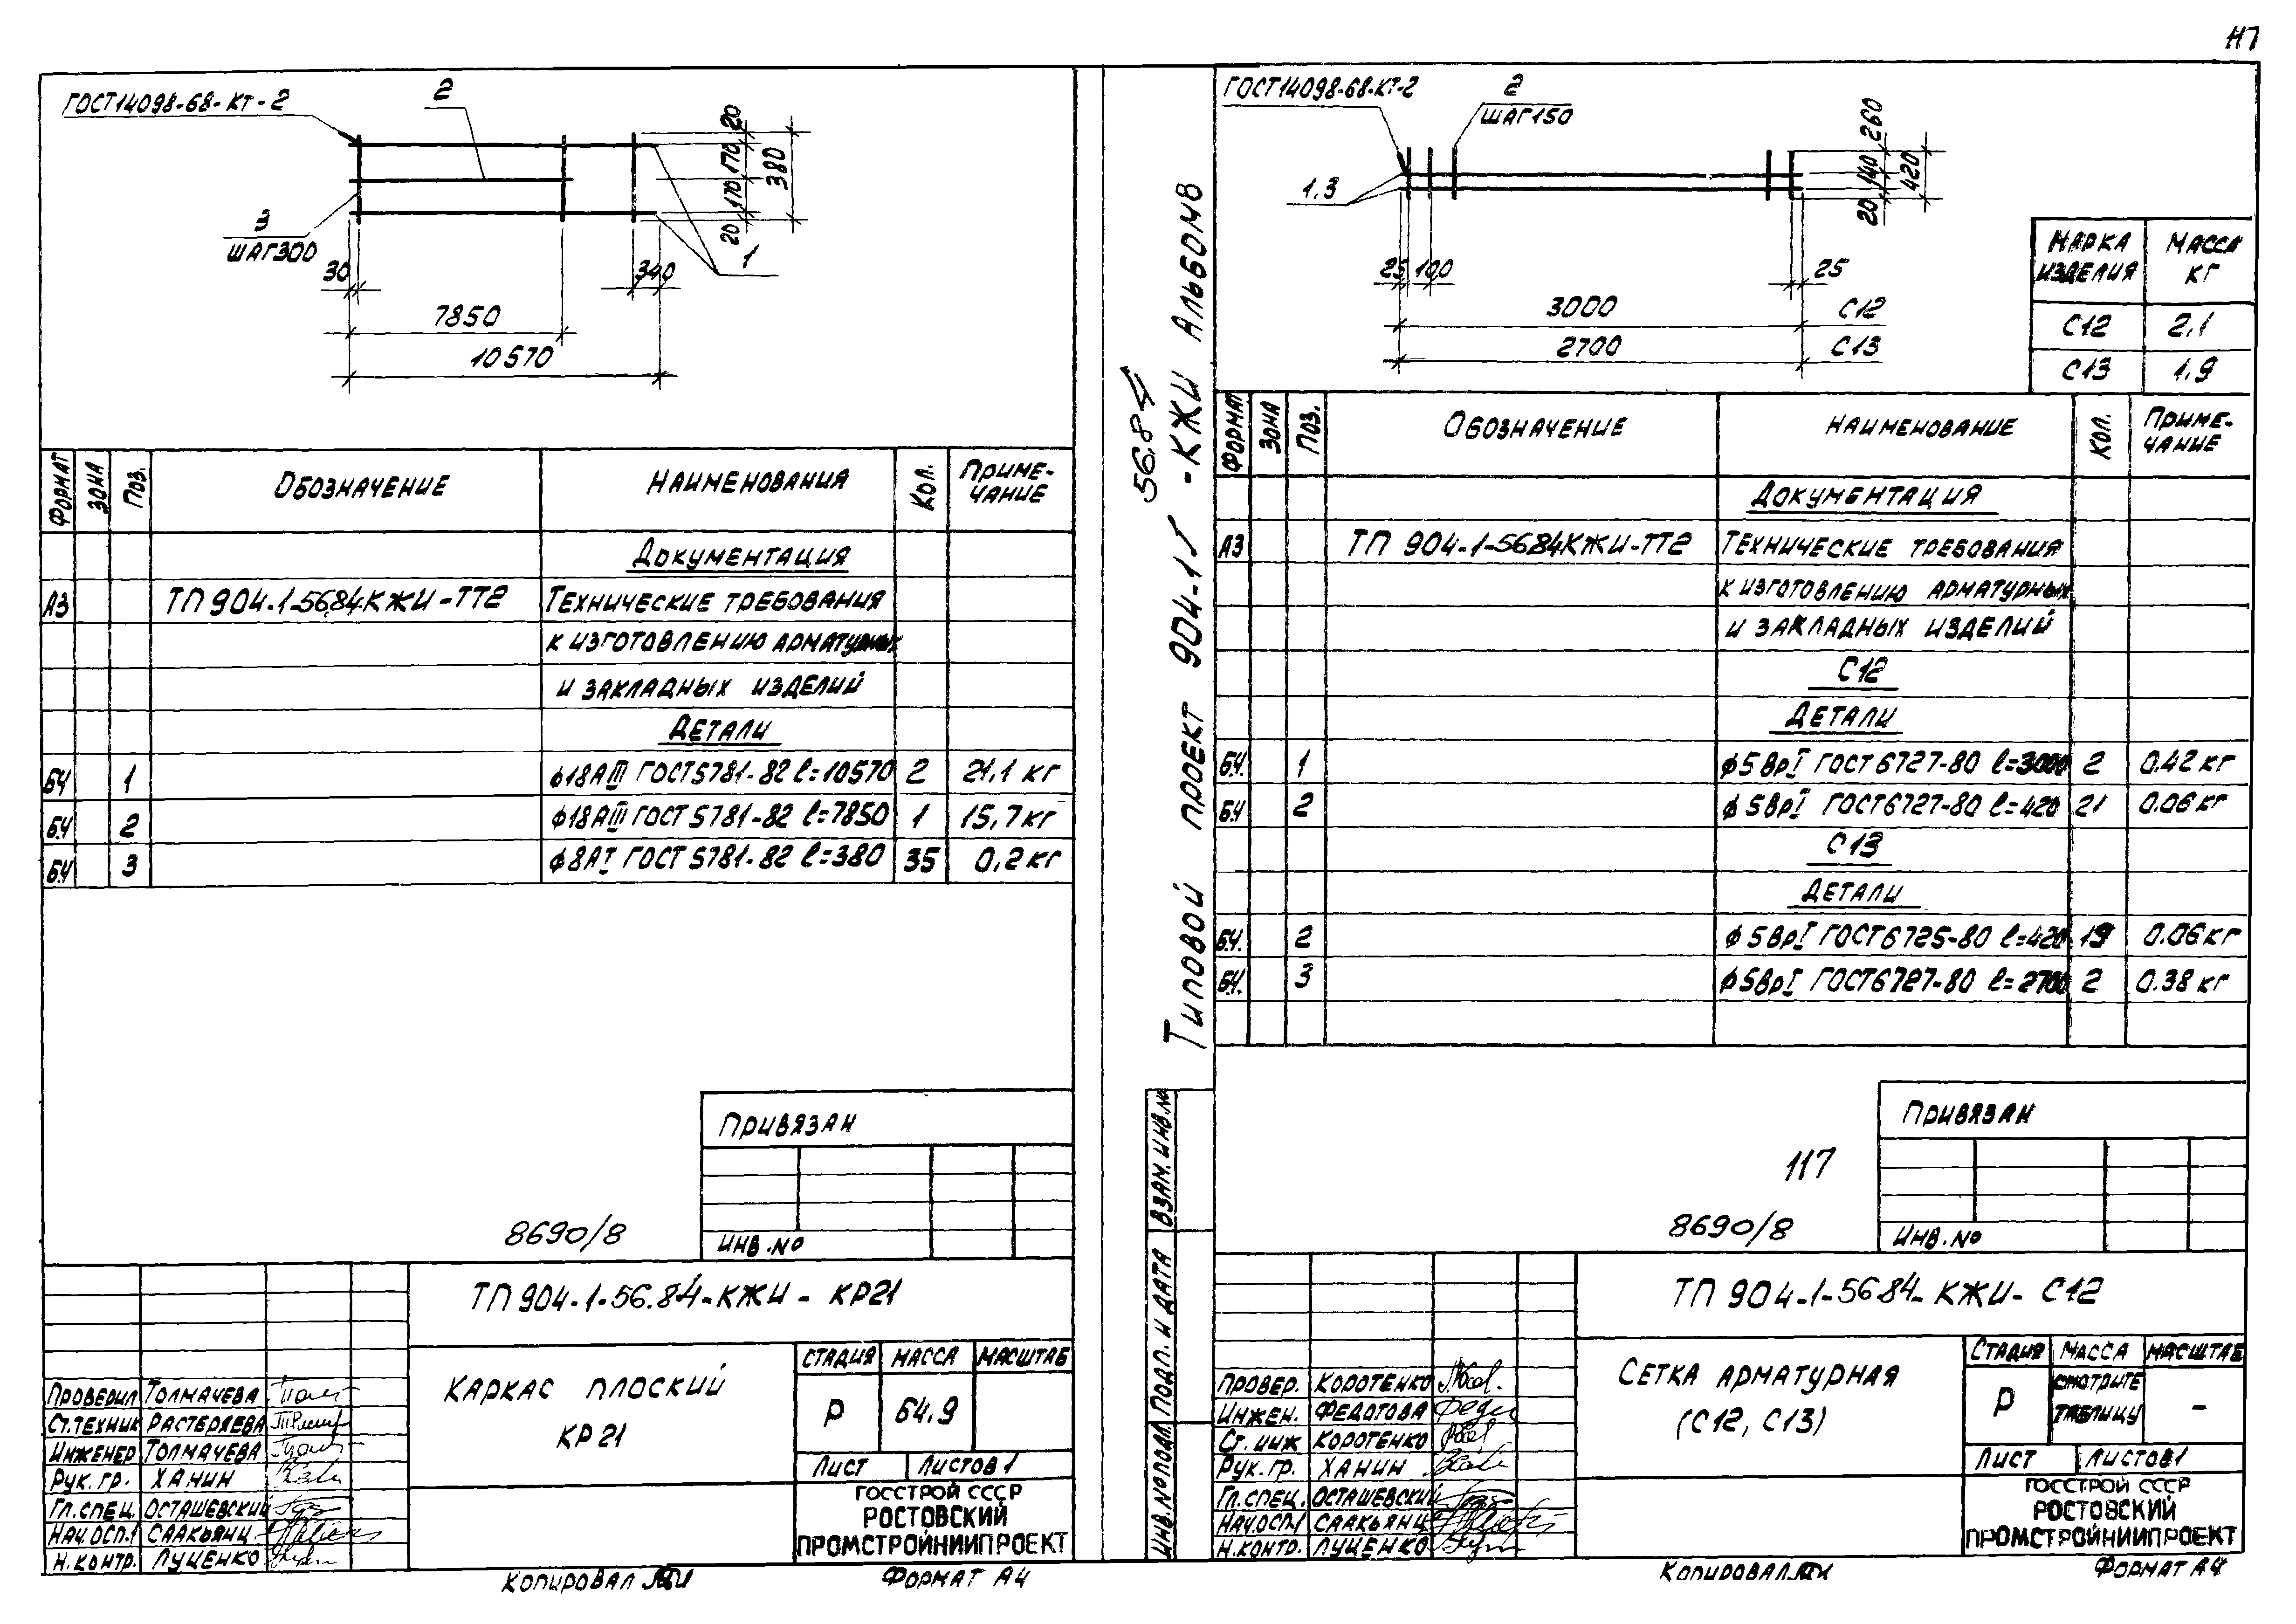 ГОСТ14098-68-КТ-2
2
3
ШАГ300
1
20
170
170
20
380
30
340
7850
10570
ФОРМАТ ЗОНА ПОЗ. ОБОЗНАЧЕНИЕ НАИМЕНОВАНИЯ КОЛ. ПРИМЕ-
ЧАНИЕ
ДОКУМЕНТАЦИЯ
А3 ТП 904-1-56.84КЖИ-ТТ2 ТЕХНИЧЕСКИЕ ТРЕБОВАНИЯ
К ИЗГОТОВЛЕНИЮ АРМАТУРНЫХ
И ЗАКЛАДНЫХ ИЗДЕЛИЙ
ДЕТАЛИ
БЧ 1 ф18АIII ГОСТ5781-82 ℓ=10570 2 21,1 кг
Б.Ч 2 ф18АIII ГОСТ5781-82 ℓ=7850 1 15,7кг
Б.Ч 3 ф8АI ГОСТ5781-82 ℓ=380 35 0,2кг
ПРИВЯЗАН
ИНВ.№
8690/8
ТП 904-1-56.84-КЖИ - КР21
КАРКАС ПЛОСКИЙ
КР21
СТАДИЯ МАССА МАСШТАБ
Р 64.9
ЛИСТ ЛИСТОВ 1
ГОССТРОЙ СССР
РОСТОВСКИЙ
ПРОМСТРОЙНИИПРОЕКТ
ПРОВЕРИЛ ТОЛМАЧЕВА
СТ.ТЕХНИК РАСТЕРЯЕВА
ИНЖЕНЕР ТОЛМАЧЕВА
РУК.ГР. ХАНИН
ГЛ.СПЕЦ. ОСТАШЕВСКИЙ
НАЧ.ОСП.1 СААКЬЯНЦ
Н.КОНТР. ЛУЦЕНКО
КОПИРОВАЛ
ФОРМАТ А4
ТИПОВОЙ ПРОЕКТ 904-1- 56.84 -КЖИ АЛЬБОМ 8
ВЗАМ.ИНВ.№
ПОДП. И ДАТА
ИНВ.№ПОДЛ.
ГОСТ14098-68-КТ-2
2
ШАГ150
1.3
260
140
20
420
25
100
25
3000 С12
2700 С13
МАРКА
ИЗДЕЛИЯ МАССА
КГ
С12 2,1
С13 1,9
ФОРМАТ ЗОНА ПОЗ. ОБОЗНАЧЕНИЕ НАИМЕНОВАНИЕ КОЛ. ПРИМЕ-
ЧАНИЕ
ДОКУМЕНТАЦИЯ
А3 ТП 904-1-5684КЖИ-ТТ2 ТЕХНИЧЕСКИЕ ТРЕБОВАНИЯ
К ИЗГОТОВЛЕНИЮ АРМАТУРНЫХ
И ЗАКЛАДНЫХ ИЗДЕЛИЙ
С12
ДЕТАЛИ
Б.Ч. 1 ф5ВрI ГОСТ6727-80 ℓ=3000 2 0.42кг
Б.Ч 2 ф5ВрI ГОСТ6727-80 ℓ=420 21 0.06кг
С13
ДЕТАЛИ
Б.Ч. 2 ф5ВрI ГОСТ6725-80 ℓ=420 19 0.06кг
Б.Ч. 3 ф5ВрI ГОСТ6727-80 ℓ=2700 2 0.38кг
ПРИВЯЗАН
ИНВ.№
117
8690/8
ТП 904-1-5684-КЖИ- С12
СЕТКА АРМАТУРНАЯ
(С12, С13)
СТАДИЯ МАССА МАСШТАБ
Р СМОТРИТЕ
ТАБЛИЦУ -
ЛИСТ ЛИСТОВ1
ГОССТРОЙ СССР
РОСТОВСКИЙ
ПРОМСТРОЙНИИПРОЕКТ
ПРОВЕР. КОРОТЕНКО
ИНЖЕН. ФЕДОТОВА
СТ. ИНЖ КОРОТЕНКО
РУК.ГР. ХАНИН
ГЛ.СПЕЦ. ОСТАШЕВСКИЙ
НАЧ.ОСП.1 СААКЬЯНЦ
Н.КОНТР. ЛУЦЕНКО
КОПИРОВАЛ
ФОРМАТ А4